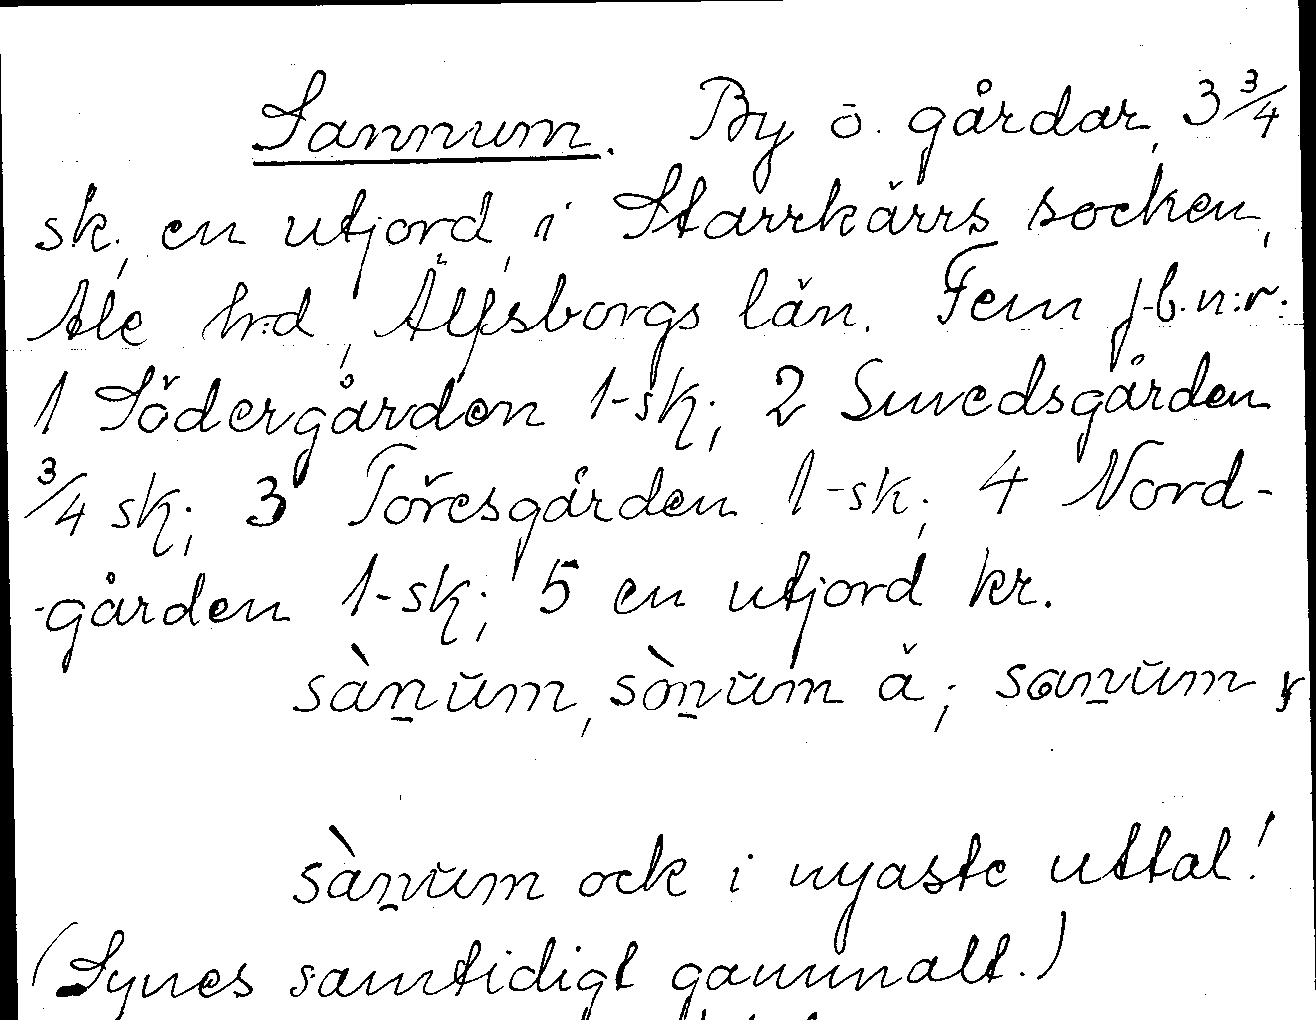 Sannum. By o. gårdar, 3 3/4
sk, en utjord, i Starrkärrs socken,
Ale h:d, Älfsborgs län. Fem j.b.n:r:
1 Södergården 1-sk; 2 Smedsgården
3/4 sk; 3 Toresgården 1-sk; 4 Nord-
-gården 1-sk; 5 en utjord kr.
sàn̲ŭm, sòn̲ŭm ä; san̲ŭm y
sàn̲ŭm ock i nyaste uttal!
(Synes samtidigt gammalt.)